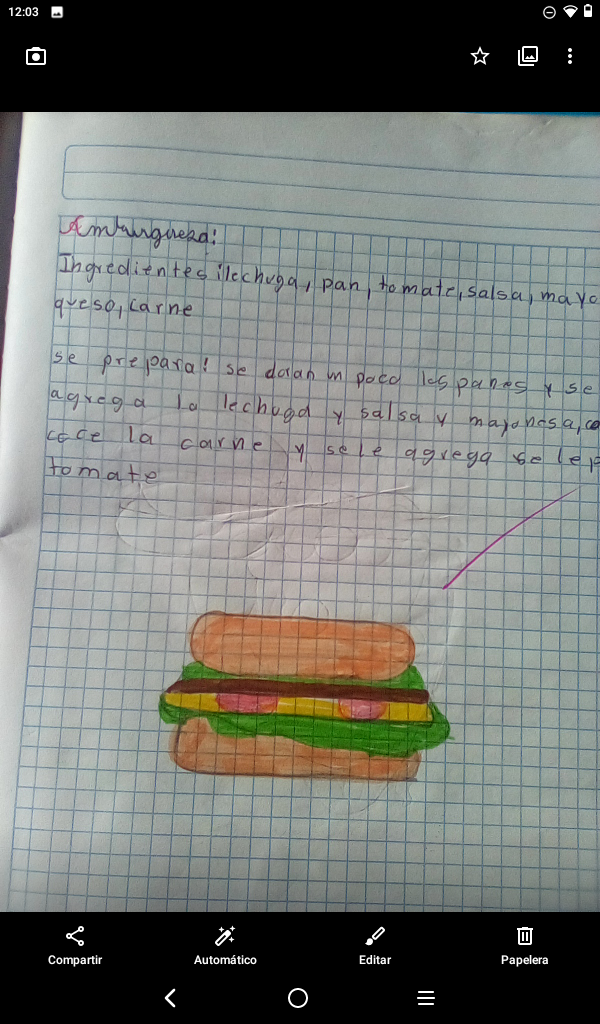 12:03
Amburgueza:
Ingredientes: lechuga, pan, tomate, salsa, mayo
queso, carne
se prepara: se doran un poco los panes y se
agrega la lechuga y salsa y mayonesa,
cece la carne y se le agrega se le
tomate
Compartir
Automático
Editar
Papelera